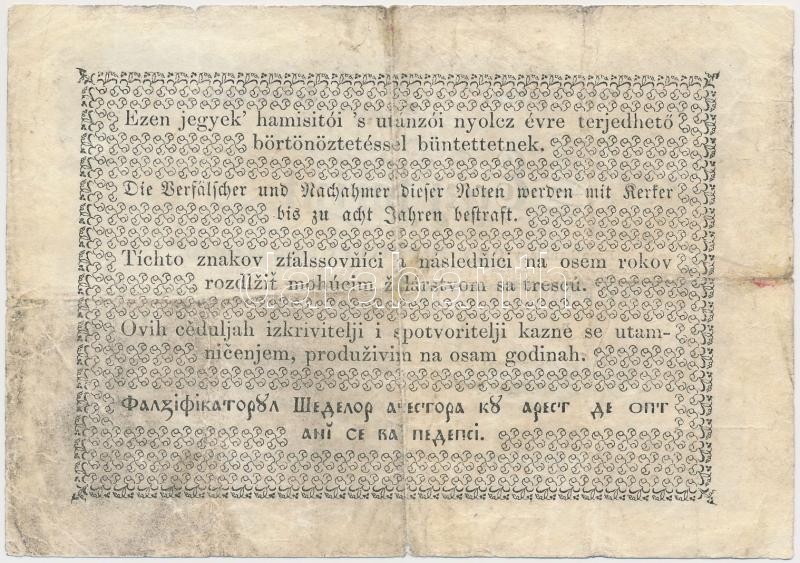 Ezen jegyek' hamisitói 's utánzói nyolcz évre terjedhető
börtönöztetéssel büntettetnek.
Die Verfälscher und Nachahmer dieser Noten werden mit Kerker
bis zu acht Jahren bestraft.
Tíchto znakov zfalssovňíci i následňíci na osem rokov
rozdlžiť mohúcim žalárstvom sa trescú.
Ovih cèduljah izkrivitelji i spotvoritelji kazne se utam-
ničenjem, produživim na osam godinah.
Фалзіфікаторꙋл Шеделор ачестора кꙋ арест де опт
анĭ се ва педепсі.
darabanth